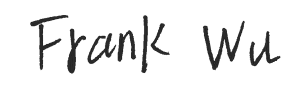 Frank Wu